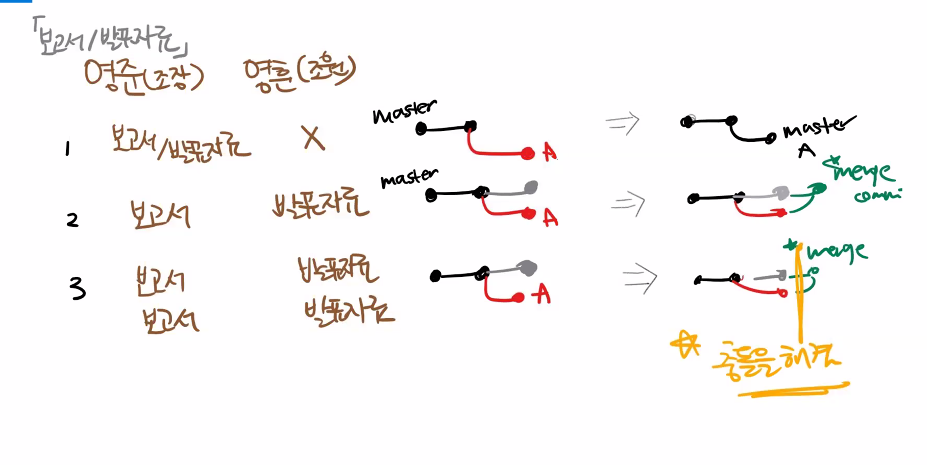 「보고서/발표자료」
영준(조장) 영흔(조원)
1 보고서/발표자료 X master A ⇒ master
A
2 보고서 발표자료 master A ⇒ *merge
commi
3 보고서 발표자료 A ⇒ *merge
보고서 발표자료
☆ 충돌을 해결